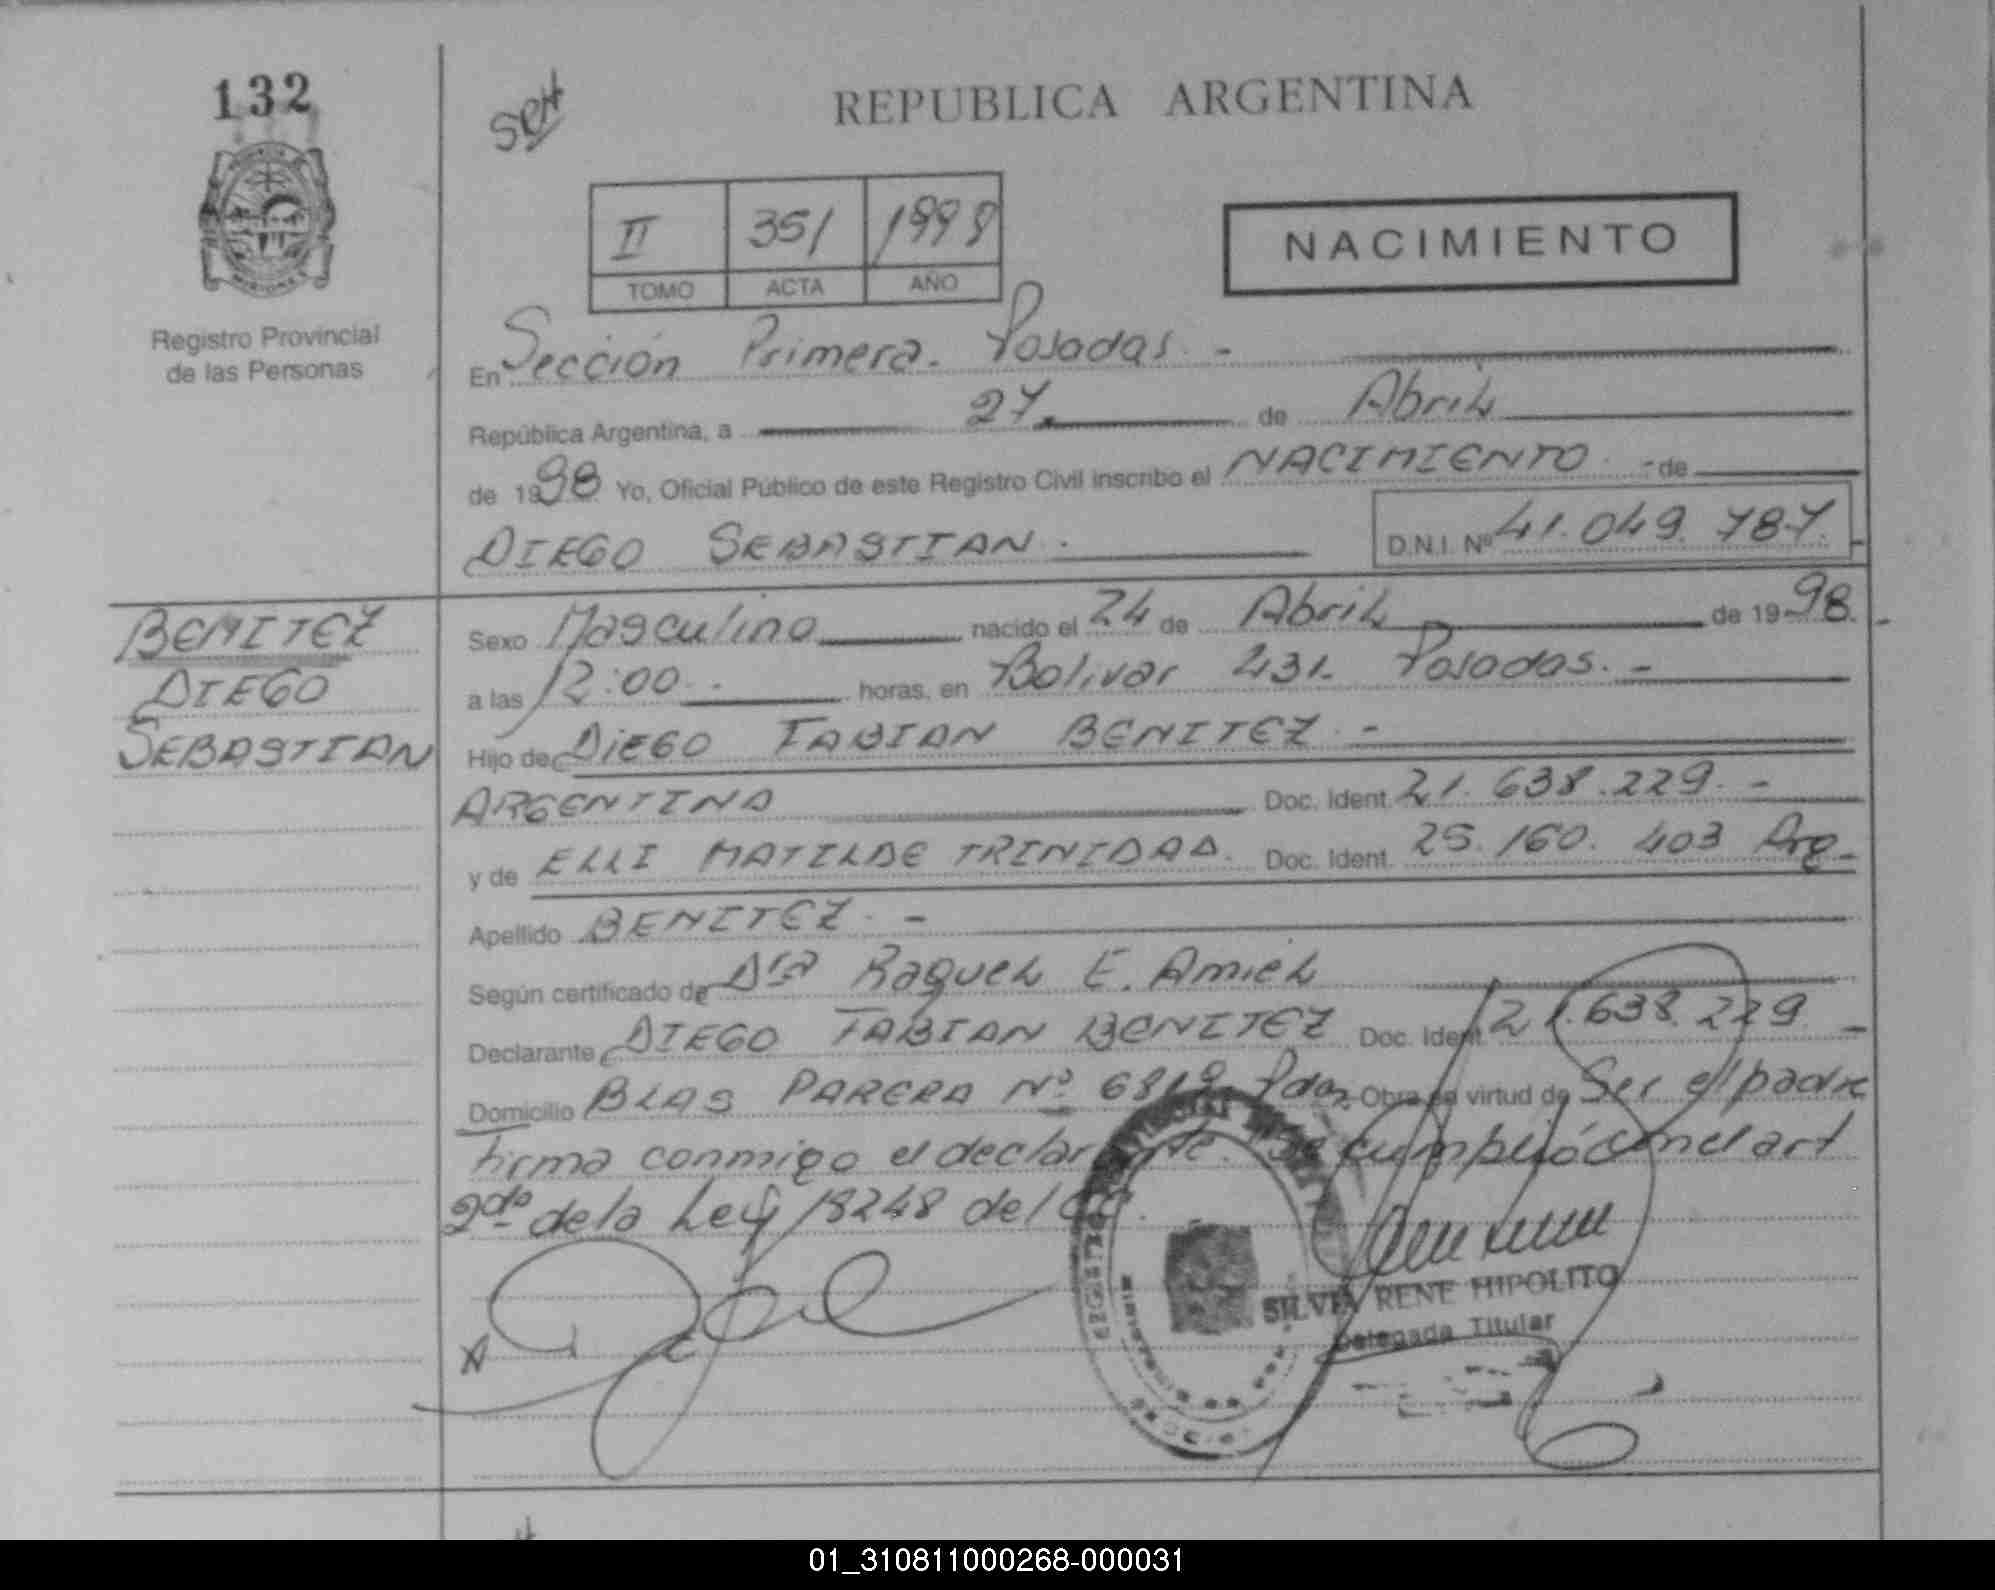 132
SCH
REPUBLICA ARGENTINA
II 351 1998
TOMO ACTA AÑO
NACIMIENTO
Registro Provincial
de las Personas
En Sección Primera. Posadas. -
República Argentina, a 27. de Abril
de 1998 Yo, Oficial Público de este Registro Civil inscribo el NACIMIENTO - de
DIEGO SEBASTIAN. D.N.I. Nº 41.049.787.
BENITEZ
DIEGO
SEBASTIAN
Sexo Masculino nacido el 24 de Abril de 1998. -
a las 12:00 - horas, en Bolivar 431. Posadas. -
Hijo de DIEGO FABIAN BENITEZ. -
ARGENTINA Doc. Ident. 21.638.229. -
y de ELLI MATILDE TRINIDAD. Doc. Ident. 25.160.403 Arg -
Apellido BENITEZ. -
Según certificado de Dra Raquel E. Amiel
Declarante DIEGO FABIAN BENITEZ Doc. Ident. 21.638.229 -
Domicilio BLAS PARERA Nº Pdas. Obra en virtud de Ser el padre
Firma conmigo el declarante. Se cumplió con el art
2do de la Ley 18248 del
SILVIA RENE HIPOLITO
Delegada Titular
01_310811000268-000031